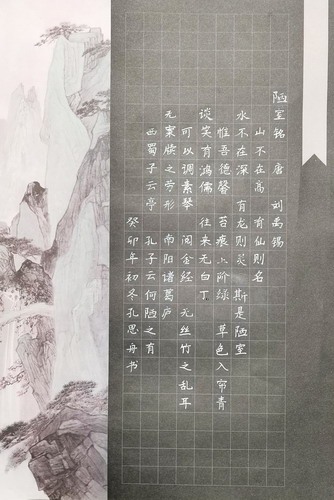 陋室铭 唐 刘禹锡
山不在高 有仙则名
水不在深 有龙则灵 斯是陋室
惟吾德馨 苔痕上阶绿 草色入帘青
谈笑有鸿儒 往来无白丁
可以调素琴 阅金经 无丝竹之乱耳
无案牍之劳形 南阳诸葛庐
西蜀子云亭 孔子云何陋之有
癸卯年初冬孔思舟书